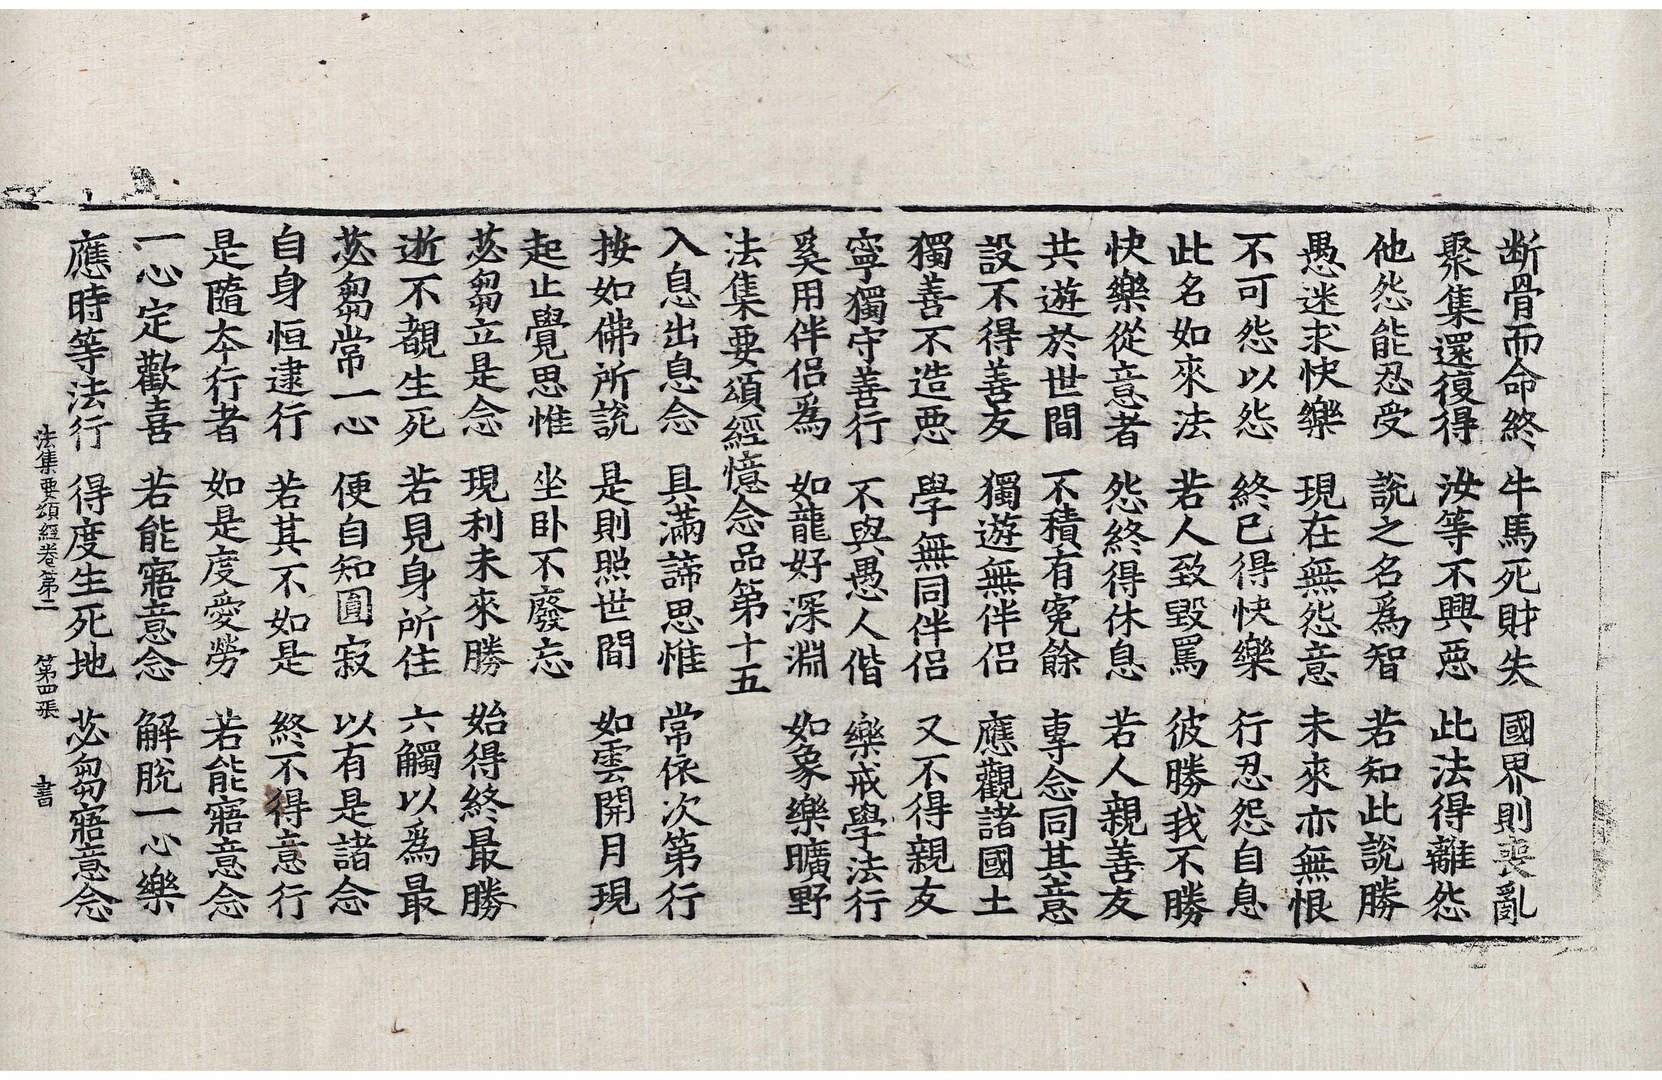 断骨而命終 牛馬死財失 國界則喪亂
聚集還復得 汝等不興惡 此法得離怨
他怨能忍受 說之名爲智 若知此說勝
愚迷求快樂 現在無怨意 未來亦無恨
不可怨以怨 終已得快樂 行忍怨自息
此名如來法 若人致毀罵 彼勝我不勝
快樂從意者 怨終得休息 若人親善友
共遊於世間 不積有寃餘 專念同其意
設不得善友 獨遊無伴侶 應觀諸國土
獨善不造惡 學無同伴侶 又不得親友
寧獨守善行 不與愚人偕 樂戒學法行
奚用伴侶爲 如龍好深淵 如象樂曠野
法集要頌經憶念品第十五
入息出息念 具滿諦思惟 常依次第行
按如佛所說 是則照世間 如雲開月現
起止覺思惟 坐卧不廢忘
苾芻立是念 現利未來勝 始得終最勝
逝不覩生死 若見身所住 六觸以爲最
苾芻常一心 便自知圓寂 以有是諸念
自身恒逮行 若其不如是 終不得意行
是隨夲行者 如是度愛勞 若能寤意念
一心定歡喜 若能寤意念 解脫一心樂
應時等法行 得度生死地 苾芻寤意念
法集要頌經卷第二 第四張 書